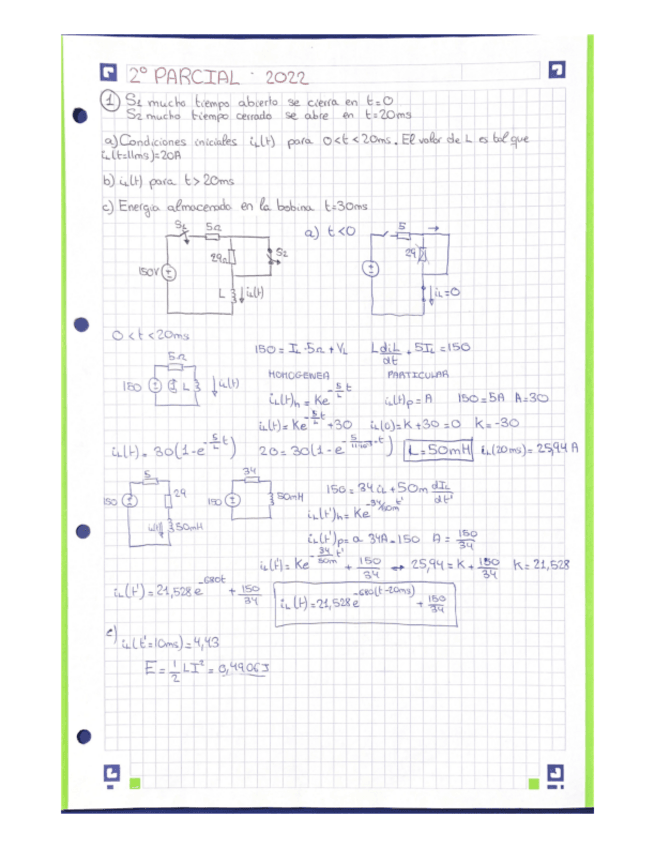 2º PARCIAL · 2022
① S1 mucho tiempo abierto se cierra en t=0
S2 mucho tiempo cerrado se abre en t=20ms
a) Condiciones iniciales iL(t) para 0<t<20ms. El valor de L es tal que
iL(t=11ms)=20A
b) iL(t) para t>20ms
c) Energía almacenada en la bobina t=30ms
S1 5Ω
29Ω S2
150V
L iL(t)
a) t<0
5
29
iL=0
0<t<20ms
5Ω
150 L iL(t)
150 = IL·5Ω + VL L diL/dt + 5IL = 150
HOMOGENEA PARTICULAR
iL(t)h = Ke^(-5/L t) iL(t)p = A 150=5A A=30
iL(t) = Ke^(-5/L t) + 30 iL(0) = K+30 = 0 K=-30
iL(t) = 30(1-e^(-5/L t)) 20 = 30(1-e L=50mH iL(20ms) = 25,94 A
5
150 29
iL(t) 50mH
34
150 50mH
150 = 34 iL + 50m dIL/dt'
iL(t')h = Ke^(-34/50m t')
iL(t')p = a 34A=150 A = 150/34
iL(t') = Ke^(-34/50m t') + 150/34 → 25,94 = K + 150/34 K=21,528
iL(t') = 21,528 e^(-680t) + 150/34 iL(t) = 21,528 e^(-680(t-20ms)) + 150/34
c) iL(t'=10ms) = 4,43
E = 1/2 LI² = 0,4906J